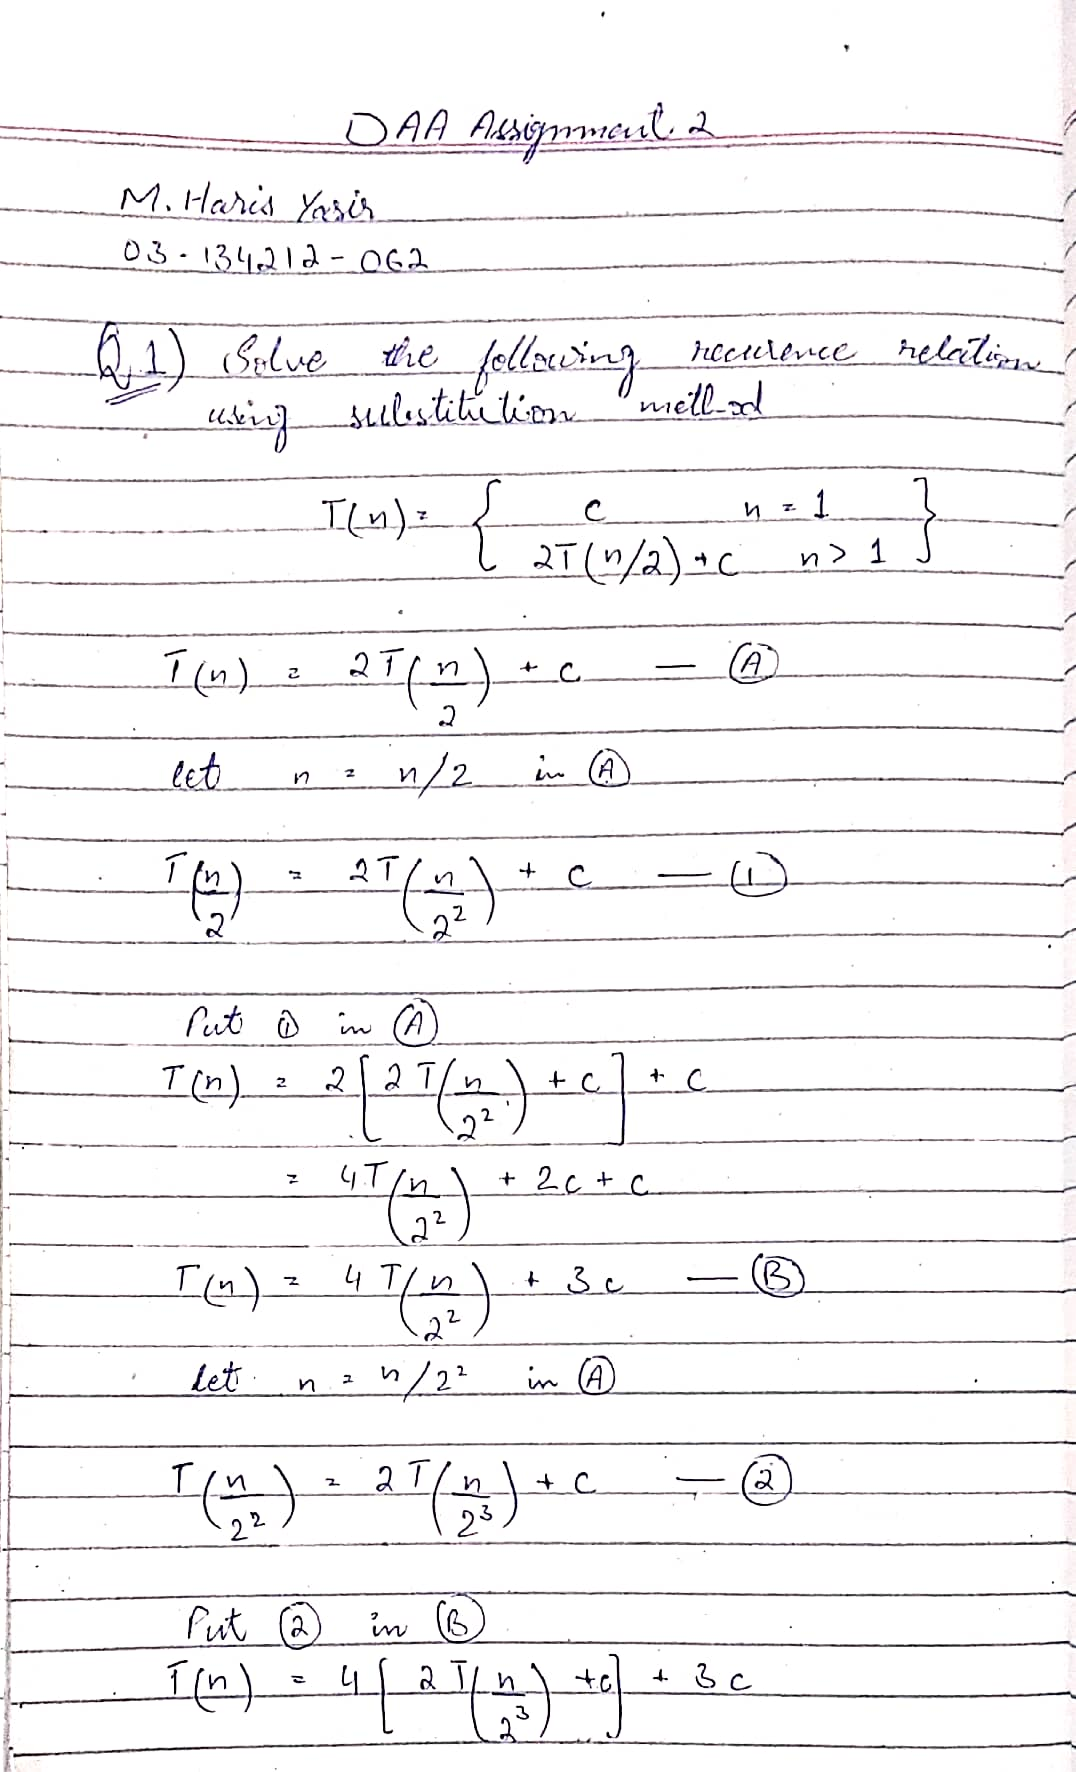 DAA Assignment 2
M. Haris Yasir
03-134212-062
Q.1) Solve the following recurence relation
using substitution method
T(n) = { c n = 1 }
2T(n/2) + c n > 1
T(n) = 2T(n/2) + c — (A)
let n = n/2 in (A)
T(n/2) = 2T(n/2²) + c — (1)
Put (1) in (A)
T(n) = 2[2T(n/2²) + c] + c
= 4T(n/2²) + 2c + c
T(n) = 4T(n/2²) + 3c — (B)
let n = n/2² in (A)
T(n/2²) = 2T(n/2³) + c — (2)
Put (2) in (B)
T(n) = 4[2T(n/2³) + c] + 3c